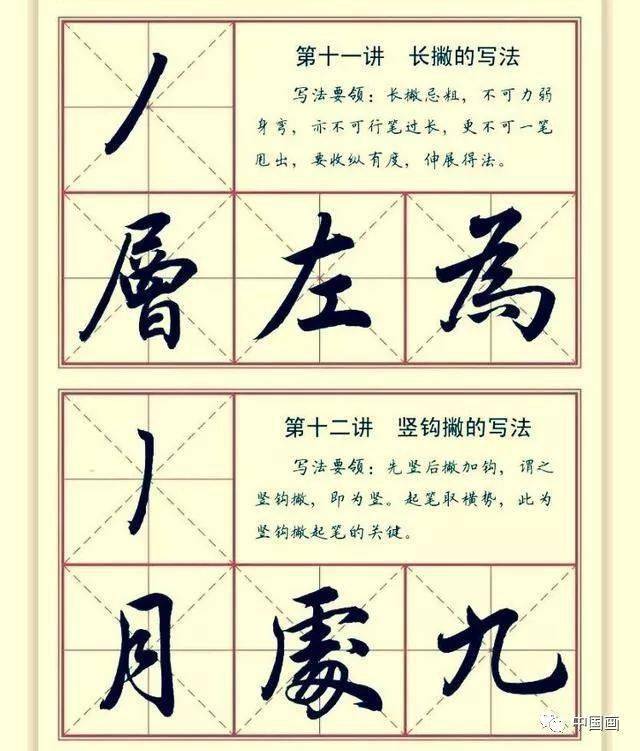 第十一讲 长撇的写法
写法要领：长撇忌粗，不可力弱
身弯，亦不可行笔过长，更不可一笔
甩出，要收纵有度，伸展得法。
層 左 為
第十二讲 竖钩撇的写法
写法要领：先竖后撇加钩，谓之
竖钩撇，即为竖。起笔取横势，此为
竖钩撇起笔的关键。
月 處 九
中国画